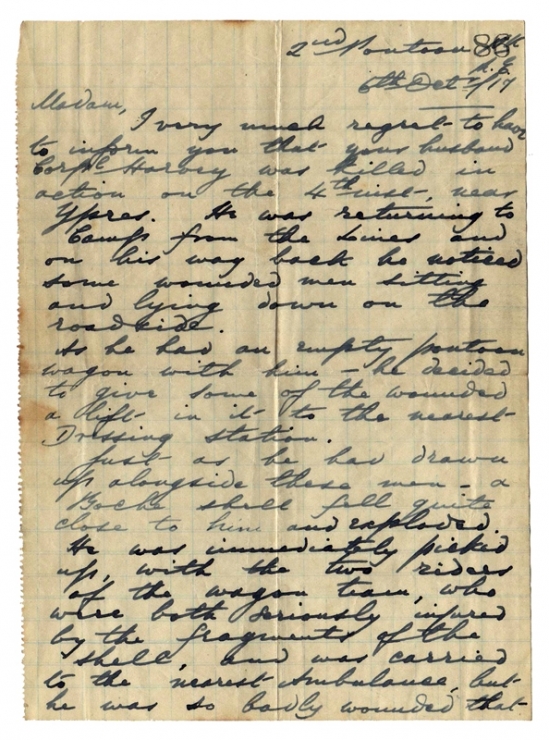 2nd Pontoon Pk
R.E.
6th Oct /17
Madam,
I very much regret to have
to inform you that your husband
Corpl Harvey was killed in
action on the 4th inst, near
Ypres. He was returning to
Camp from the Lines and
on his way back he noticed
some wounded men sitting
and lying down on the
roadside.
As he had an empty pontoon
wagon with him - he decided
to give some of the wounded
a lift in it to the nearest
Dressing station.
Just as he had drawn
up alongside these men - a
Boche shell fell quite
close to him and exploded.
He was immediately picked
up, with the two riders
of the wagon team, who
were both seriously injured
by the fragments of the
shell, and was carried
to the nearest Ambulance, but
he was so badly wounded that